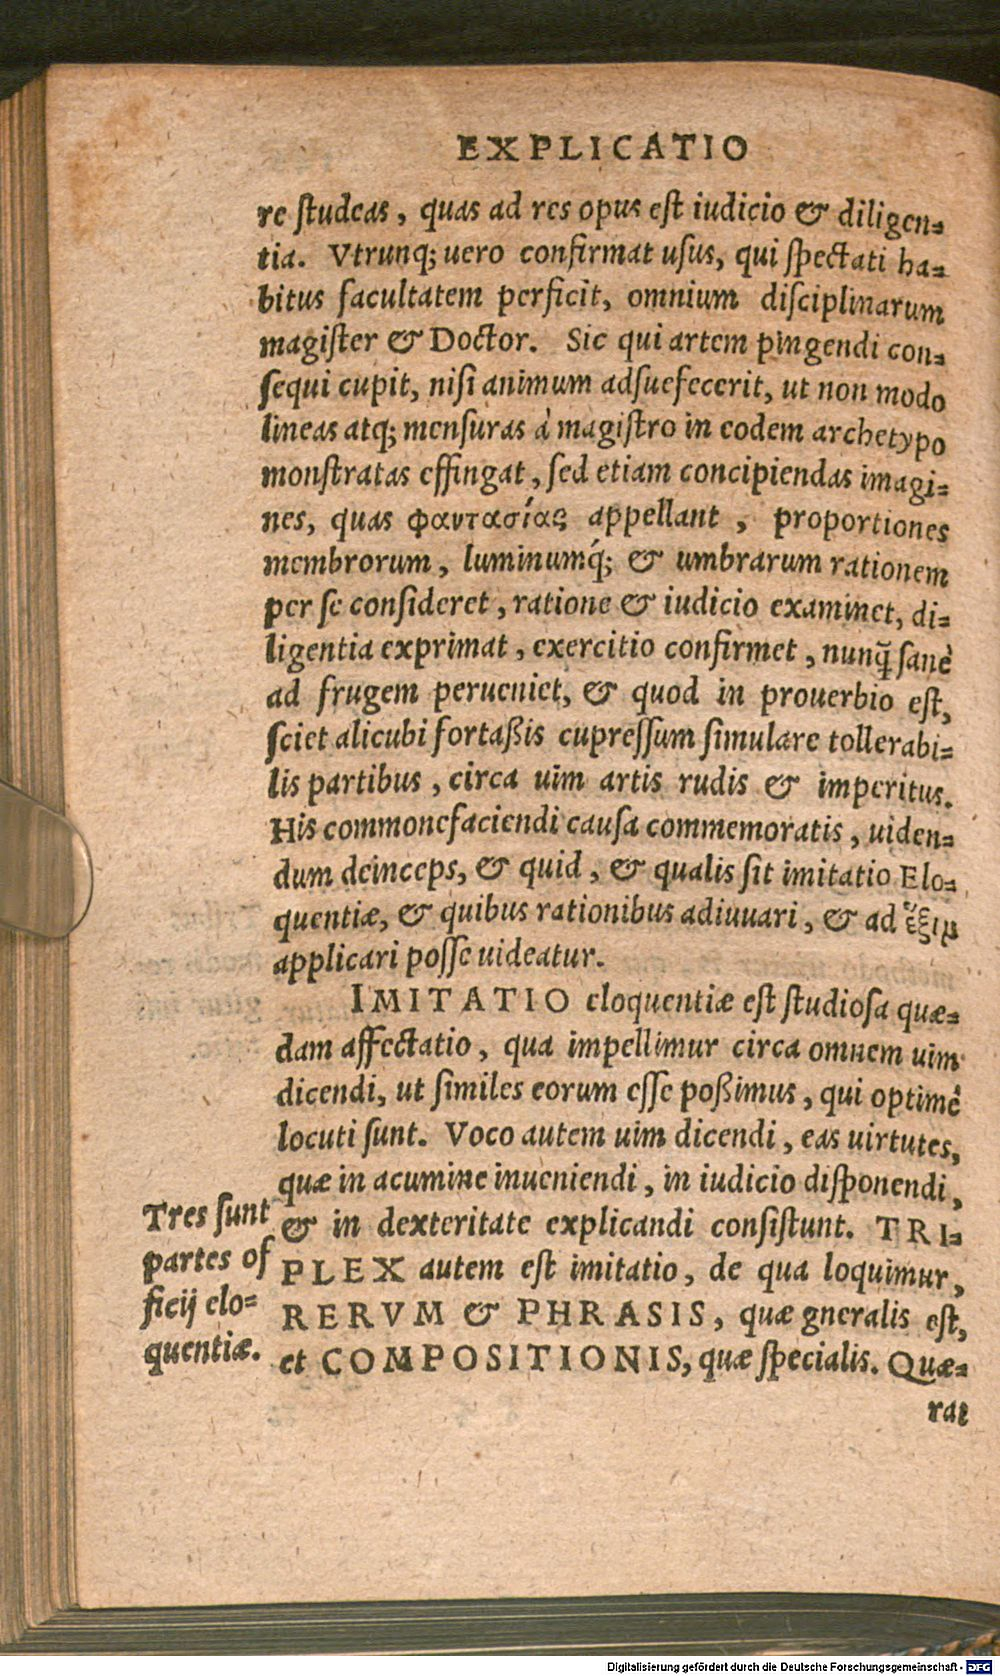 EXPLICATIO
re ſtudeas, quas ad res opus eſt iudicio & diligen-
tia. Vtrunq; uero confirmat uſus, qui ſpectati ha-
bitus facultatem perficit, omnium diſciplinarum
magiſter & Doctor. Sic qui artem pingendi con-
ſequi cupit, niſi animum adſuefecerit, ut non modo
lineas atq; menſuras à magiſtro in eodem archetypo
monſtratas effingat, ſed etiam concipiendas imagi-
nes, quas φαντασίας appellant, proportiones
membrorum, luminumq́; & umbrarum rationem
per ſe conſideret, ratione & iudicio examinet, di-
ligentia exprimat, exercitio confirmet, nunq̃ ſanè
ad frugem perueniet, & quod in prouerbio eſt,
ſciet alicubi fortaßis cupreſſum ſimulare tollerabi-
lis partibus, circa uim artis rudis & imperitus.
His commonefaciendi cauſa commemoratis, uiden-
dum deinceps, & quid, & qualis ſit imitatio Elo-
quentiæ, & quibus rationibus adiuuari, & ad ἕξιμ
applicari poſſe uideatur.
IMITATIO eloquentiæ eſt ſtudioſa quæ-
dam affectatio, qua impellimur circa omnem uim
dicendi, ut ſimiles eorum eſſe poßimus, qui optimè
locuti ſunt. Voco autem uim dicendi, eas uirtutes,
quæ in acumine inueniendi, in iudicio diſponendi,
& in dexteritate explicandi conſiſtunt. TRI-
PLEX autem eſt imitatio, de qua loquimur,
RERVM & PHRASIS, quæ gneralis eſt,
et COMPOSITIONIS, quæ ſpecialis. Quæ-
rat
Tres ſunt
partes of
ficij elo-
quentiæ.
Digitalisierung gefördert durch die Deutsche Forschungsgemeinschaft - DFG